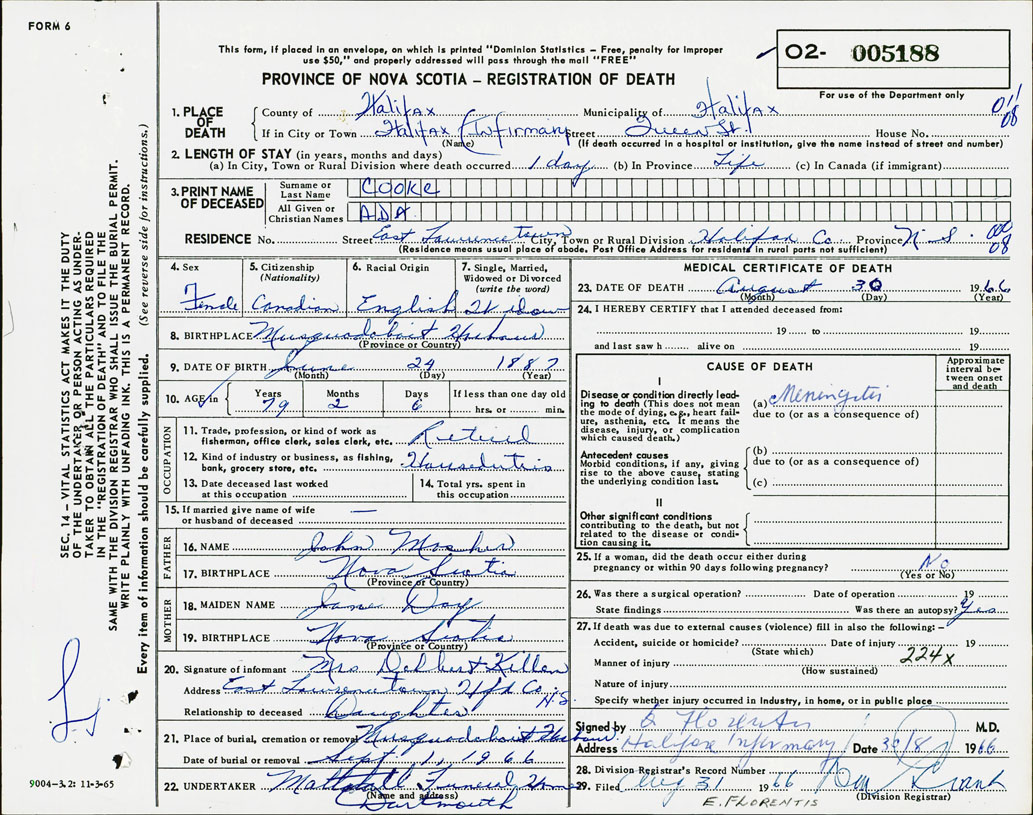 FORM 6
This form, if placed in an envelope, on which is printed "Dominion Statistics – Free, penalty for improper
use $50," and properly addressed will pass through the mail "FREE"
PROVINCE OF NOVA SCOTIA – REGISTRATION OF DEATH
O2- 005188
For use of the Department only
1. PLACE OF DEATH
County of Halifax Municipality of Halifax
If in City or Town Halifax (Infirmary Street Queen St. House No.
(Name) (If death occurred in a hospital or institution, give the name instead of street and number)
2. LENGTH OF STAY (in years, months and days)
(a) In City, Town or Rural Division where death occurred 1 day (b) In Province Life (c) In Canada (if immigrant)
3. PRINT NAME OF DECEASED
Surname or Last Name COOKE
All Given or Christian Names ADA
RESIDENCE No. Street East Lawrencetown City, Town or Rural Division Halifax Co. Province N.S.
(Residence means usual place of abode. Post Office Address for residents in rural parts not sufficient)
08
08
4. Sex Female
5. Citizenship (Nationality) Canadian
6. Racial Origin English
7. Single, Married, Widowed or Divorced (write the word) Widow
8. BIRTHPLACE Musquodoboit Harbour
(Province or Country)
9. DATE OF BIRTH June 24 1887
(Month) (Day) (Year)
10. AGE in Years 79 Months 2 Days 6 If less than one day old
hrs. or min.
OCCUPATION
11. Trade, profession, or kind of work as
fisherman, office clerk, sales clerk, etc. Retired
12. Kind of industry or business, as fishing,
bank, grocery store, etc. Houseduties
13. Date deceased last worked
at this occupation
14. Total yrs. spent in
this occupation
15. If married give name of wife
or husband of deceased —
FATHER
16. NAME John Mosher
17. BIRTHPLACE Nova Scotia
(Province or Country)
MOTHER
18. MAIDEN NAME Jane Day
19. BIRTHPLACE Nova Scotia
(Province or Country)
20. Signature of informant Mrs. Delbert Killen
Address East Lawrencetown Hfx Co. N.S.
Relationship to deceased Daughter
21. Place of burial, cremation or removal Musquodoboit Harbour
Date of burial or removal Sept 1, 1966
22. UNDERTAKER Mattatall Funeral Home
(Name and address)
Dartmouth
MEDICAL CERTIFICATE OF DEATH
23. DATE OF DEATH August 30 1966
(Month) (Day) (Year)
24. I HEREBY CERTIFY that I attended deceased from:
19 to 19
and last saw h alive on 19
CAUSE OF DEATH
Approximate interval between onset and death
I
Disease or condition directly leading to death (This does not mean
the mode of dying, e.g., heart failure, asthenia, etc. It means the
disease, injury, or complication
which caused death.)
(a) Meningitis
due to (or as a consequence of)
Antecedent causes
Morbid conditions, if any, giving
rise to the above cause, stating
the underlying condition last.
(b)
due to (or as a consequence of)
(c)
II
Other significant conditions
contributing to the death, but not
related to the disease or condition causing it.
25. If a woman, did the death occur either during
pregnancy or within 90 days following pregnancy? No
(Yes or No)
26. Was there a surgical operation? Date of operation 19
State findings Was there an autopsy? Yes
27. If death was due to external causes (violence) fill in also the following: –
Accident, suicide or homicide? Date of injury 19
(State which) 224x
Manner of injury
(How sustained)
Nature of injury
Specify whether injury occurred in Industry, in home, or in public place
Signed by E Florentis M.D.
Address Halifax Infirmary Date 30/8/ 1966
28. Division Registrar's Record Number
29. Filed Aug 31 1966
(Division Registrar)
E. FLORENTIS
SEC. 14 – VITAL STATISTICS ACT MAKES IT THE DUTY
OF THE UNDERTAKER OR PERSON ACTING AS UNDER-
TAKER TO OBTAIN ALL THE PARTICULARS REQUIRED
IN THE "REGISTRATION OF DEATH" AND TO FILE THE
SAME WITH THE DIVISION REGISTRAR WHO SHALL ISSUE THE BURIAL PERMIT.
WRITE PLAINLY WITH UNFADING INK. THIS IS A PERMANENT RECORD.
Every item of information should be carefully supplied. (See reverse side for instructions.)
9004–3.2: 11-3-65